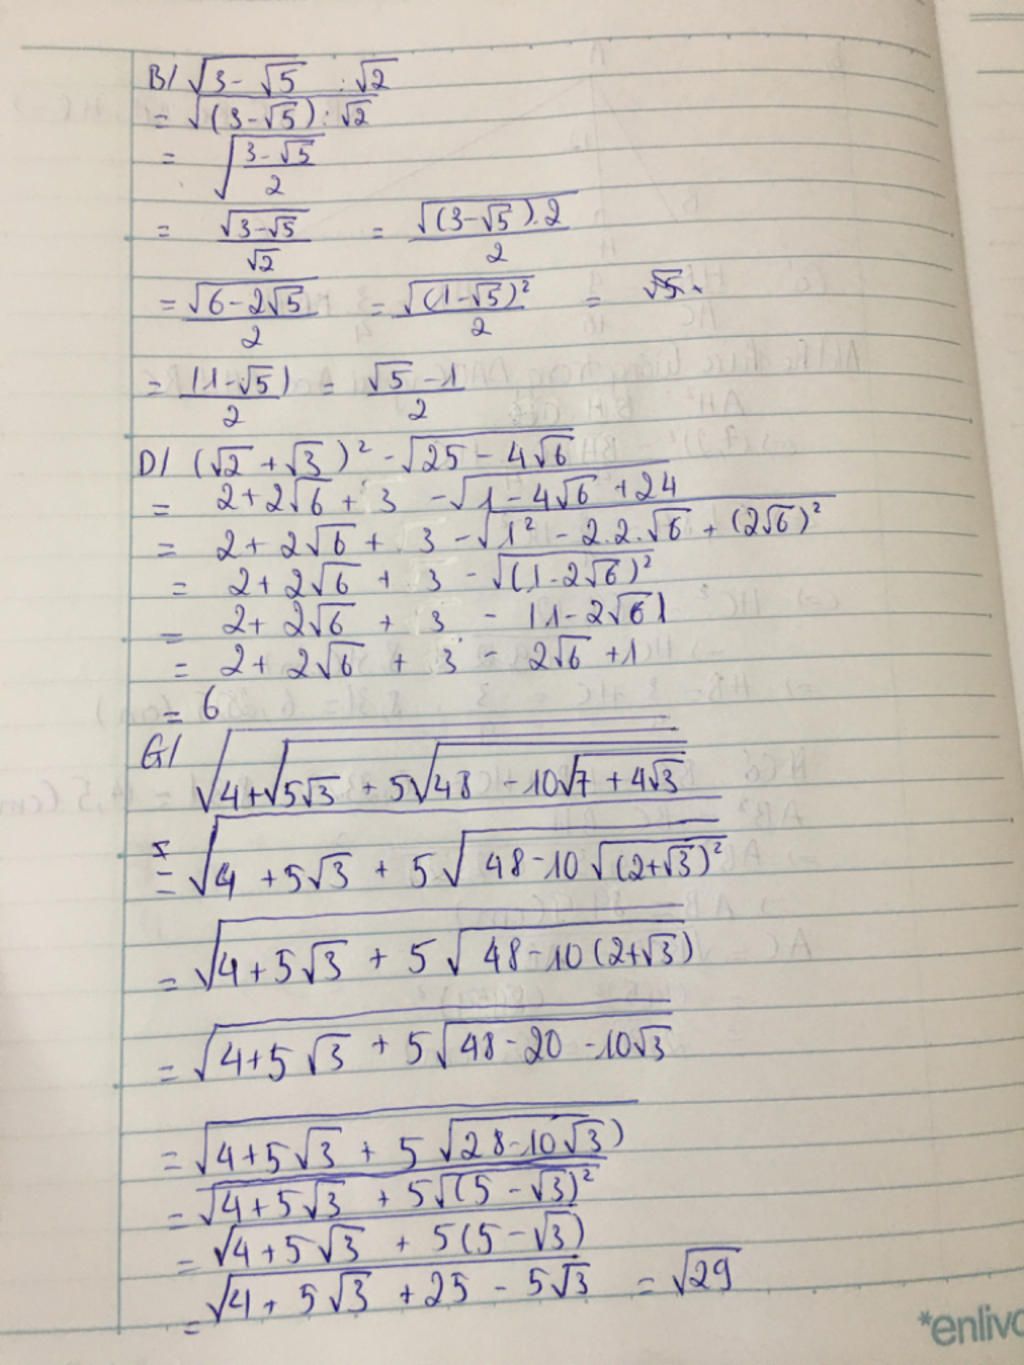 B/ √(3-√5) : √2
= √((3-√5) : √2)
= √((3-√5)/2)
= √(3-√5)/√2 = √((3-√5).2)/2
= √(6-2√5)/2 = √((1-√5)²)/2 =
= |1-√5|/2 = (√5-1)/2
D/ (√2+√3)² - √(25-4√6)
= 2+2√6+3 - √(1-4√6+24)
= 2+2√6+3 - √(1²-2.2.√6+(2√6)²)
= 2+2√6+3 - √((1-2√6)²)
= 2+2√6+3 - |1-2√6|
= 2+2√6+3 - 2√6+1
= 6
G/ √(4+√(5√3+5√(48-10√(7+4√3))))
= √(4+5√3+5√(48-10√((2+√3)²)))
= √(4+5√3+5√(48-10(2+√3)))
= √(4+5√3+5√(48-20-10√3))
= √(4+5√3+5√(28-10√3))
= √(4+5√3+5√((5-√3)²))
= √(4+5√3+5(5-√3))
= √(4+5√3+25-5√3) = √29
*enlivo